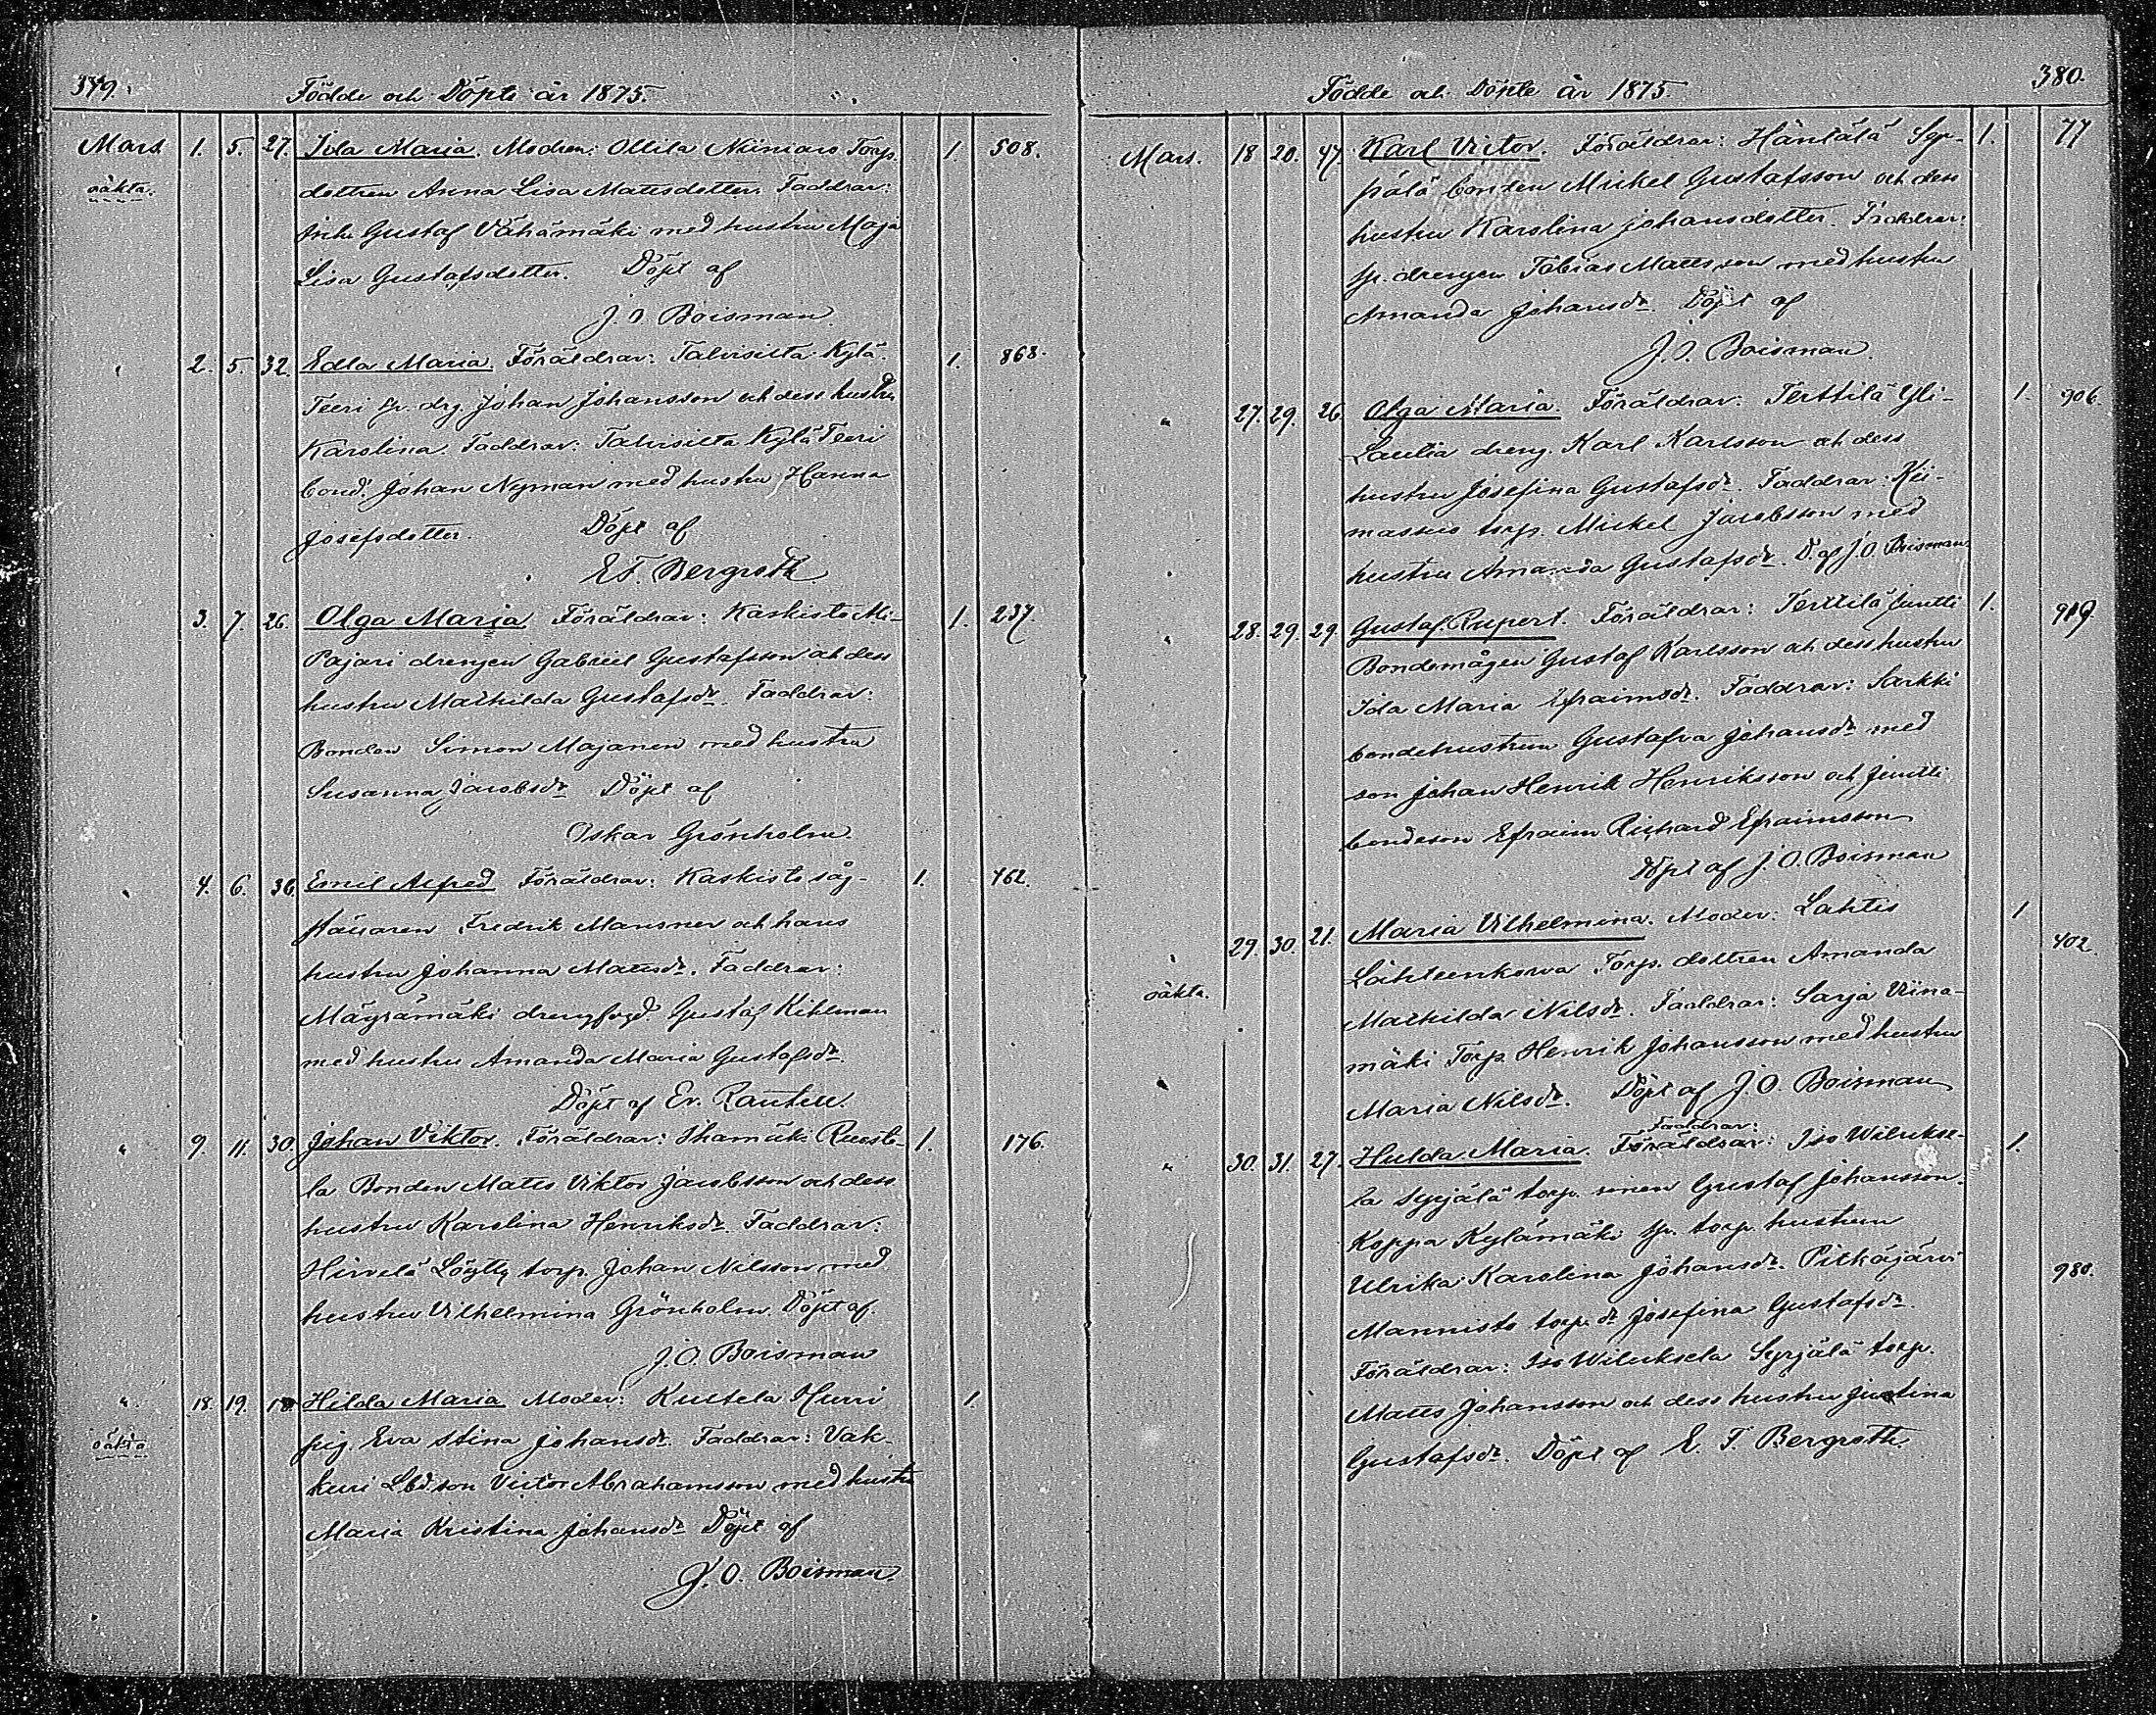 379.
Födde och Döpte år 1875.
Mars 1. 5. 27. Ida Maria. Modren: Ollila Niemaro Torp. 1. 508.
oäkta.
dottren Anna Lisa Mattsdotter. Faddrar:
Inh. Gustaf Vähämäki med hustru Maja
Lisa Gustafsdotter. Döpt af
J. O. Boisman.
" 2. 5. 32. Edla Maria. Föräldrar: Talvisilta Kylä 1. 868.
Teeri sp. drg. Johan Johansson och dess hustru
Karolina. Faddrar: Talvisilta Kylä Teeri
bond. Johan Nyman med hustru Hanna
Josefsdotter. Döpt af
E. T. Bergroth
3. 7. 26. Olga Maria Föräldrar: Kaskisto Ali- 1. 237.
Pajari drengen Gabriel Gustafsson och dess
hustru Mathilda Gustafsdr. Faddrar:
Bonden Simon Majanen med hustru
Susanna Jacobsdr. Döpt af
Oskar Grönholm.
" 4. 6. 36. Emil Alfred Föräldrar: Kaskisto såg- 1. 462.
ställaren Fredrik Mansner och hans
hustru Johanna Mattsdr. Faddrar:
Mäyrämäki drengfogd. Gustaf Kihlman
med hustru Amanda Maria Gustafsdr.
Döpt af Ev. Rautell.
" 9. 11. 30. Johan Viktor. Föräldrar: Ihamäki Ruosto- 1. 176.
la Bonden Matts Viktor Jacobsson och dess
hustru Karolina Henriksdr. Faddrar:
Hirvelä Löytty torp. Johan Nilsson med
hustru Vilhelmina Grönholm. Döpt af.
J. O. Boisman
" 18. 19. 18. Hilda Maria Moder: Kuttela Hurri 1.
oäkta
pig. Eva Stina Johansdr. Faddrar: Vak-
kuri Lbd. son Victor Abrahamsson med hustru
Maria Kristina Johansdr. Döpt af
J. O. Boisman.
380.
Födde och Döpte år 1875.
Mars. 18 20. 47. Karl Victor. Föräldrar: Häntälä Sep- 1. 77
pälä bonden Mickel Gustafsson och dess
hustru Karolina Johansdotter. Faddrar:
sp. drengen Tobias Mattsson med hustru
Amanda Johansdr. Döpt af
J. O. Boisman.
" 27. 29. 26. Olga Maria. Föräldrar: Terttilä Yli- 1. 906.
Lautia dreng. Karl Karlsson och dess
hustru Josefina Gustafsdr. Faddrar: Kii-
massuo torp. Mickel Jacobsson med
hustru Amanda Gustafsdr. D. af J. O. Boisman.
" 28. 29. 29. Gustaf Rupert. Föräldrar: Terttilä Juntti 1. 919.
Bondemågen Gustaf Karlsson och dess hustru
Ida Maria Efraimsdr. Faddrar: Sarkki
bondehustrun Gustafva Johansdr. med
son Johan Henrik Henriksson och Juntti
bondeson Efraim Richard Efraimsson
Döpt af J. O. Boisman
" 29. 30. 21. Maria Vilhelmina. Moder: Lahtis 1 402.
oäkta.
Lähteenkorva Torp. dottren Amanda
Mathilda Nilsdr. Faddrar: Sarja Viina-
mäki Torp. Henrik Johansson med hustru
Maria Nilsdr. Döpt af J. O. Boisman
Faddrar:
" 30. 31. 27. Hulda Maria. Föräldrar: Iso Wiluksel- 1.
la Syrjälä torp. sonen Gustaf Johansson.
Koppa Kylämäki sp. torp. hustrun
Ulrika Karolina Johansdr. Pitkäjärvi 980.
Mannisto torp. dr. Josefina Gustafsdr.
Föräldrar: Iso Wiluksela Syrjälä torp.
Matts Johansson och dess hustru Justina
Gustafsdr. Döpt af E. T. Bergroth.